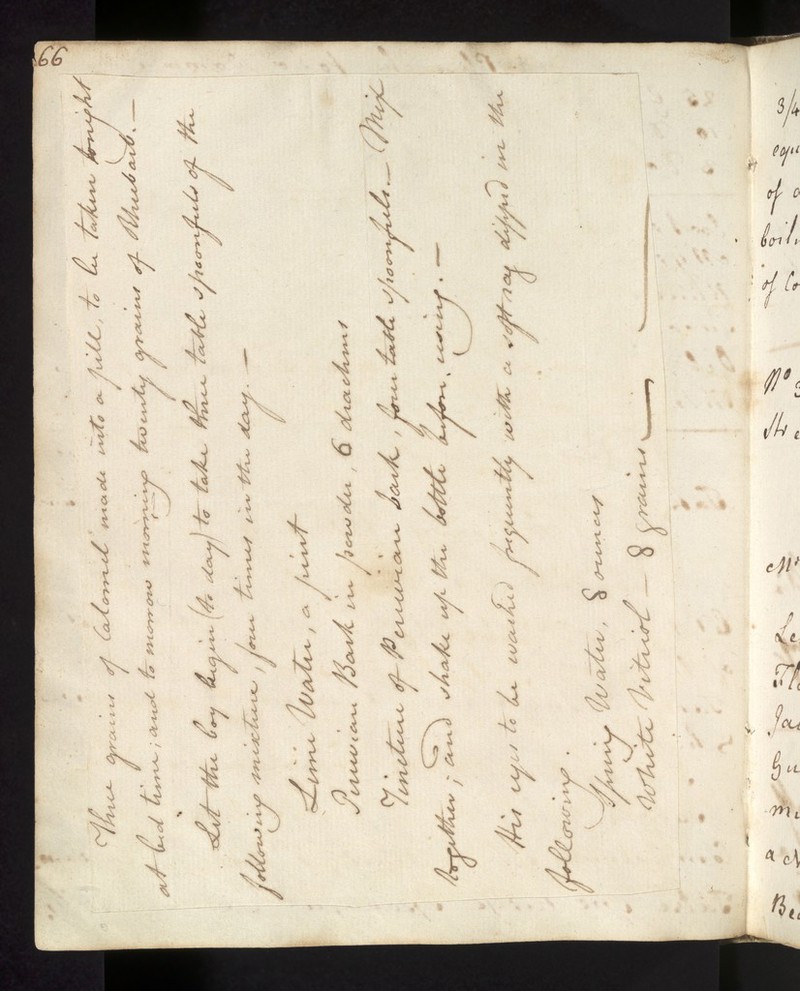 66
Three grains of Calomel made into a pill, to be taken tonight
at bed time; and to morrow morning twenty grains of Rhubarb.—
Let the boy begin (to day) to take three table spoonfuls of the
following mixture, four times in the day.—
Lime Water, a pint
Peruvian Bark in powder, 6 drachms
Tincture of Peruvian bark, four table spoonfuls.— Mix
together; and shake up the bottle before using.—
His eyes to be washed frequently with a soft rag dipped in the
following.
Spring Water, 8 ounces
White Vitriol – 8 grains —
3/4
of
of Co
No 3